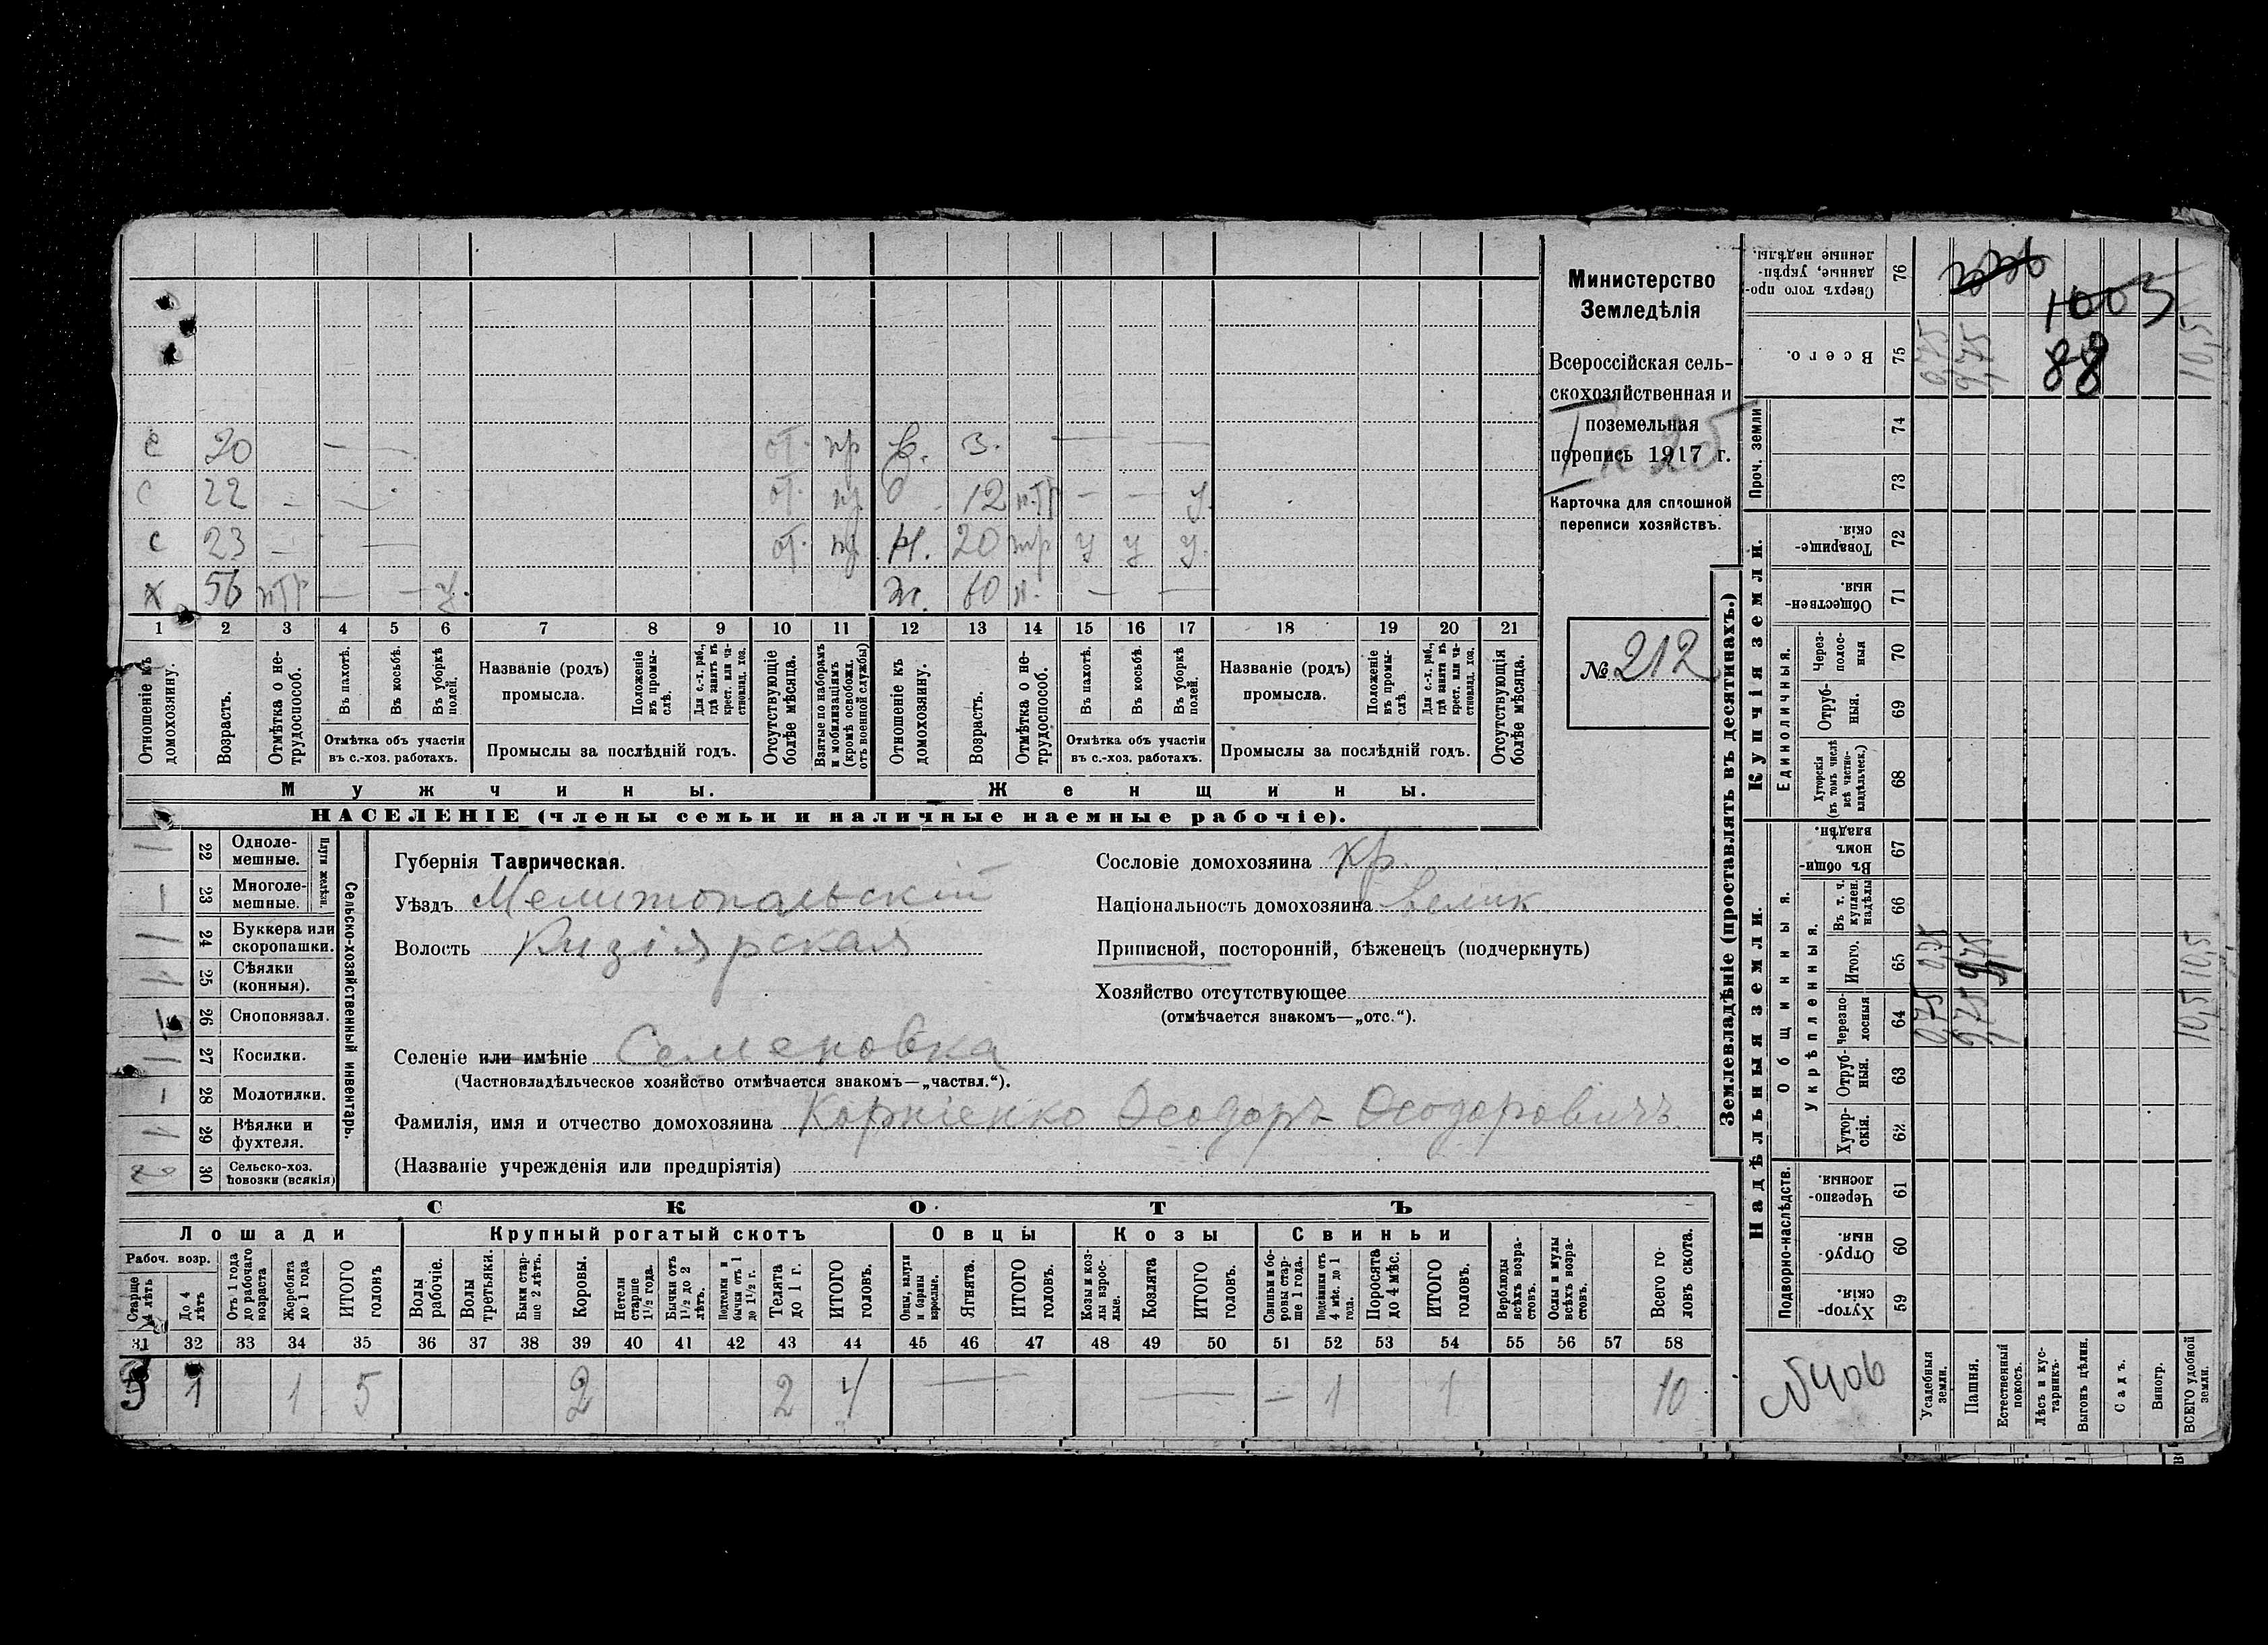 Министерство
Земледѣлія
Всероссійская сель-
скохозяйственная и
поземельная
перепись 1917 г.
Карточка для сплошной
переписи хозяйствъ.
№ 212
с 20 — — от. пр в. 3. — —
с 22 от. пр 12 — — у.
с 23 — от. пр н. 20 у у у
х 56 — — у. ж. 60 н. — —
1 2 3 4 5 6 7 8 9 10 11 12 13 14 15 16 17 18 19 20 21
Отношеніе къ домохозяину.
Возрастъ.
Отмѣтка о не-трудоспособ.
Въ пахотѣ.
Въ косьбѣ.
Въ уборкѣ полей.
Отмѣтка объ участіи въ с.-хоз. работахъ.
Названіе (родъ) промысла.
Положеніе въ промы-слѣ.
Для с.-х. раб., гдѣ занятъ въ крест. или ча-стновлад. хоз.
Промыслы за послѣдній годъ.
Отсутствующіе болѣе мѣсяца.
Взятые по наборамъ и мобилизаціямъ (кромѣ освобожд. отъ военной службы)
Отношеніе къ домохозяину.
Возрастъ.
Отмѣтка о не-трудоспособ.
Въ пахотѣ.
Въ косьбѣ.
Въ уборкѣ полей.
Отмѣтка объ участіи въ с.-хоз. работахъ.
Названіе (родъ) промысла.
Положеніе въ промы-слѣ.
Для с.-х. раб., гдѣ занятъ въ крест. или ча-стновлад. хоз.
Промыслы за послѣдній годъ.
Отсутствующія болѣе мѣсяца.
Мужчины. Женщины.
НАСЕЛЕНІЕ (члены семьи и наличные наемные рабочіе).
Сельско-хозяйственный инвентарь.
Плуги желѣзн.
1 22 Одноле-мешные.
1 23 Многоле-мешные.
1 24 Буккера или скоропашки.
1 25 Сѣялки (конныя).
26 Сноповязал.
1 27 Косилки.
1 28 Молотилки.
1 29 Вѣялки и фухтеля.
2 30 Сельско-хоз. повозки (всякія)
Губернія Таврическая.
Уѣздъ Мелитопальскій
Волость Кизіярская
Селеніе или имѣніе Семеновка
(Частновладѣльческое хозяйство отмѣчается знакомъ—„частвл.“).
Фамилія, имя и отчество домохозяина Корніенко Ѳеодоръ Ѳеодоровичъ
(Названіе учрежденія или предпріятія)
Сословіе домохозяина кр.
Національность домохозяина велик
Приписной, посторонній, бѣженецъ (подчеркнуть)
Хозяйство отсутствующее
(отмѣчается знакомъ—„отс.“).
СКОТЪ
Лошади Крупный рогатый скотъ Овцы Козы Свиньи
Рабоч. возр.
Старше 4 лѣтъ
До 4 лѣтъ
Отъ 1 года до рабочаго возраста
Жеребята до 1 года
ИТОГО головъ
Волы рабочіе.
Волы третьяки.
Быки стар-ше 2 лѣтъ.
Коровы.
Нетели старше 1½ года.
Бычки отъ 1½ до 2 лѣтъ.
Подтелки и бычки отъ 1 до 1½ г.
Телята до 1 г.
ИТОГО головъ.
Овцы, валухи и бараны взрослые.
Ягнята.
ИТОГО головъ.
Козы и коз-лы взрос-лые.
Козлята
ИТОГО головъ.
Свиньи и бо-ровы стар-ше 1 года.
Подсвинки отъ 4 мѣс. до 1 года.
Поросята до 4 мѣс.
ИТОГО головъ.
Верблюды всѣхъ возра-стовъ.
Ослы и мулы всѣхъ возра-стовъ.
Всего го-ловъ скота.
31 32 33 34 35 36 37 38 39 40 41 42 43 44 45 46 47 48 49 50 51 52 53 54 55 56 57 58
3 1 1 5 2 2 4 — — — 1 1 10
Землевладѣніе (проставлять въ десятинахъ.)
Надѣльныя земли. Купчія земли. Проч. земли
Подворно-наслѣдств.
Общинныя.
Укрѣпленныя.
Единоличныя.
Хутор-скія. 59
Отруб-ныя. 60
Черезпо-лосныя. 61
Хутор-скія. 62
Отруб-ныя. 63
Черезпо-лосныя 64 0,75 9,75 10,5
Итого. 65 0,75 9,75 10,5
Въ т. ч. куплен. надѣлы 66
Въ общин-номъ владѣн. 67
Хуторскія (въ томъ числѣ всѣ частно-владѣльческ.) 68
Отруб-ныя. 69
Через-полос-ныя 70
Обществен-ныя. 71
Товарище-скія. 72
73
74
Всего. 75 0,75 9,75 10,5
Сверхъ того про-данные, укрѣп-ленные надѣлы. 76
1003
88
№406
Усадебныя земли.
Пашня.
Естественный покосъ.
Лѣсъ и кус-тарникъ.
Выгонъ цѣлин.
Садъ.
Виногр.
ВСЕГО удобной земли.